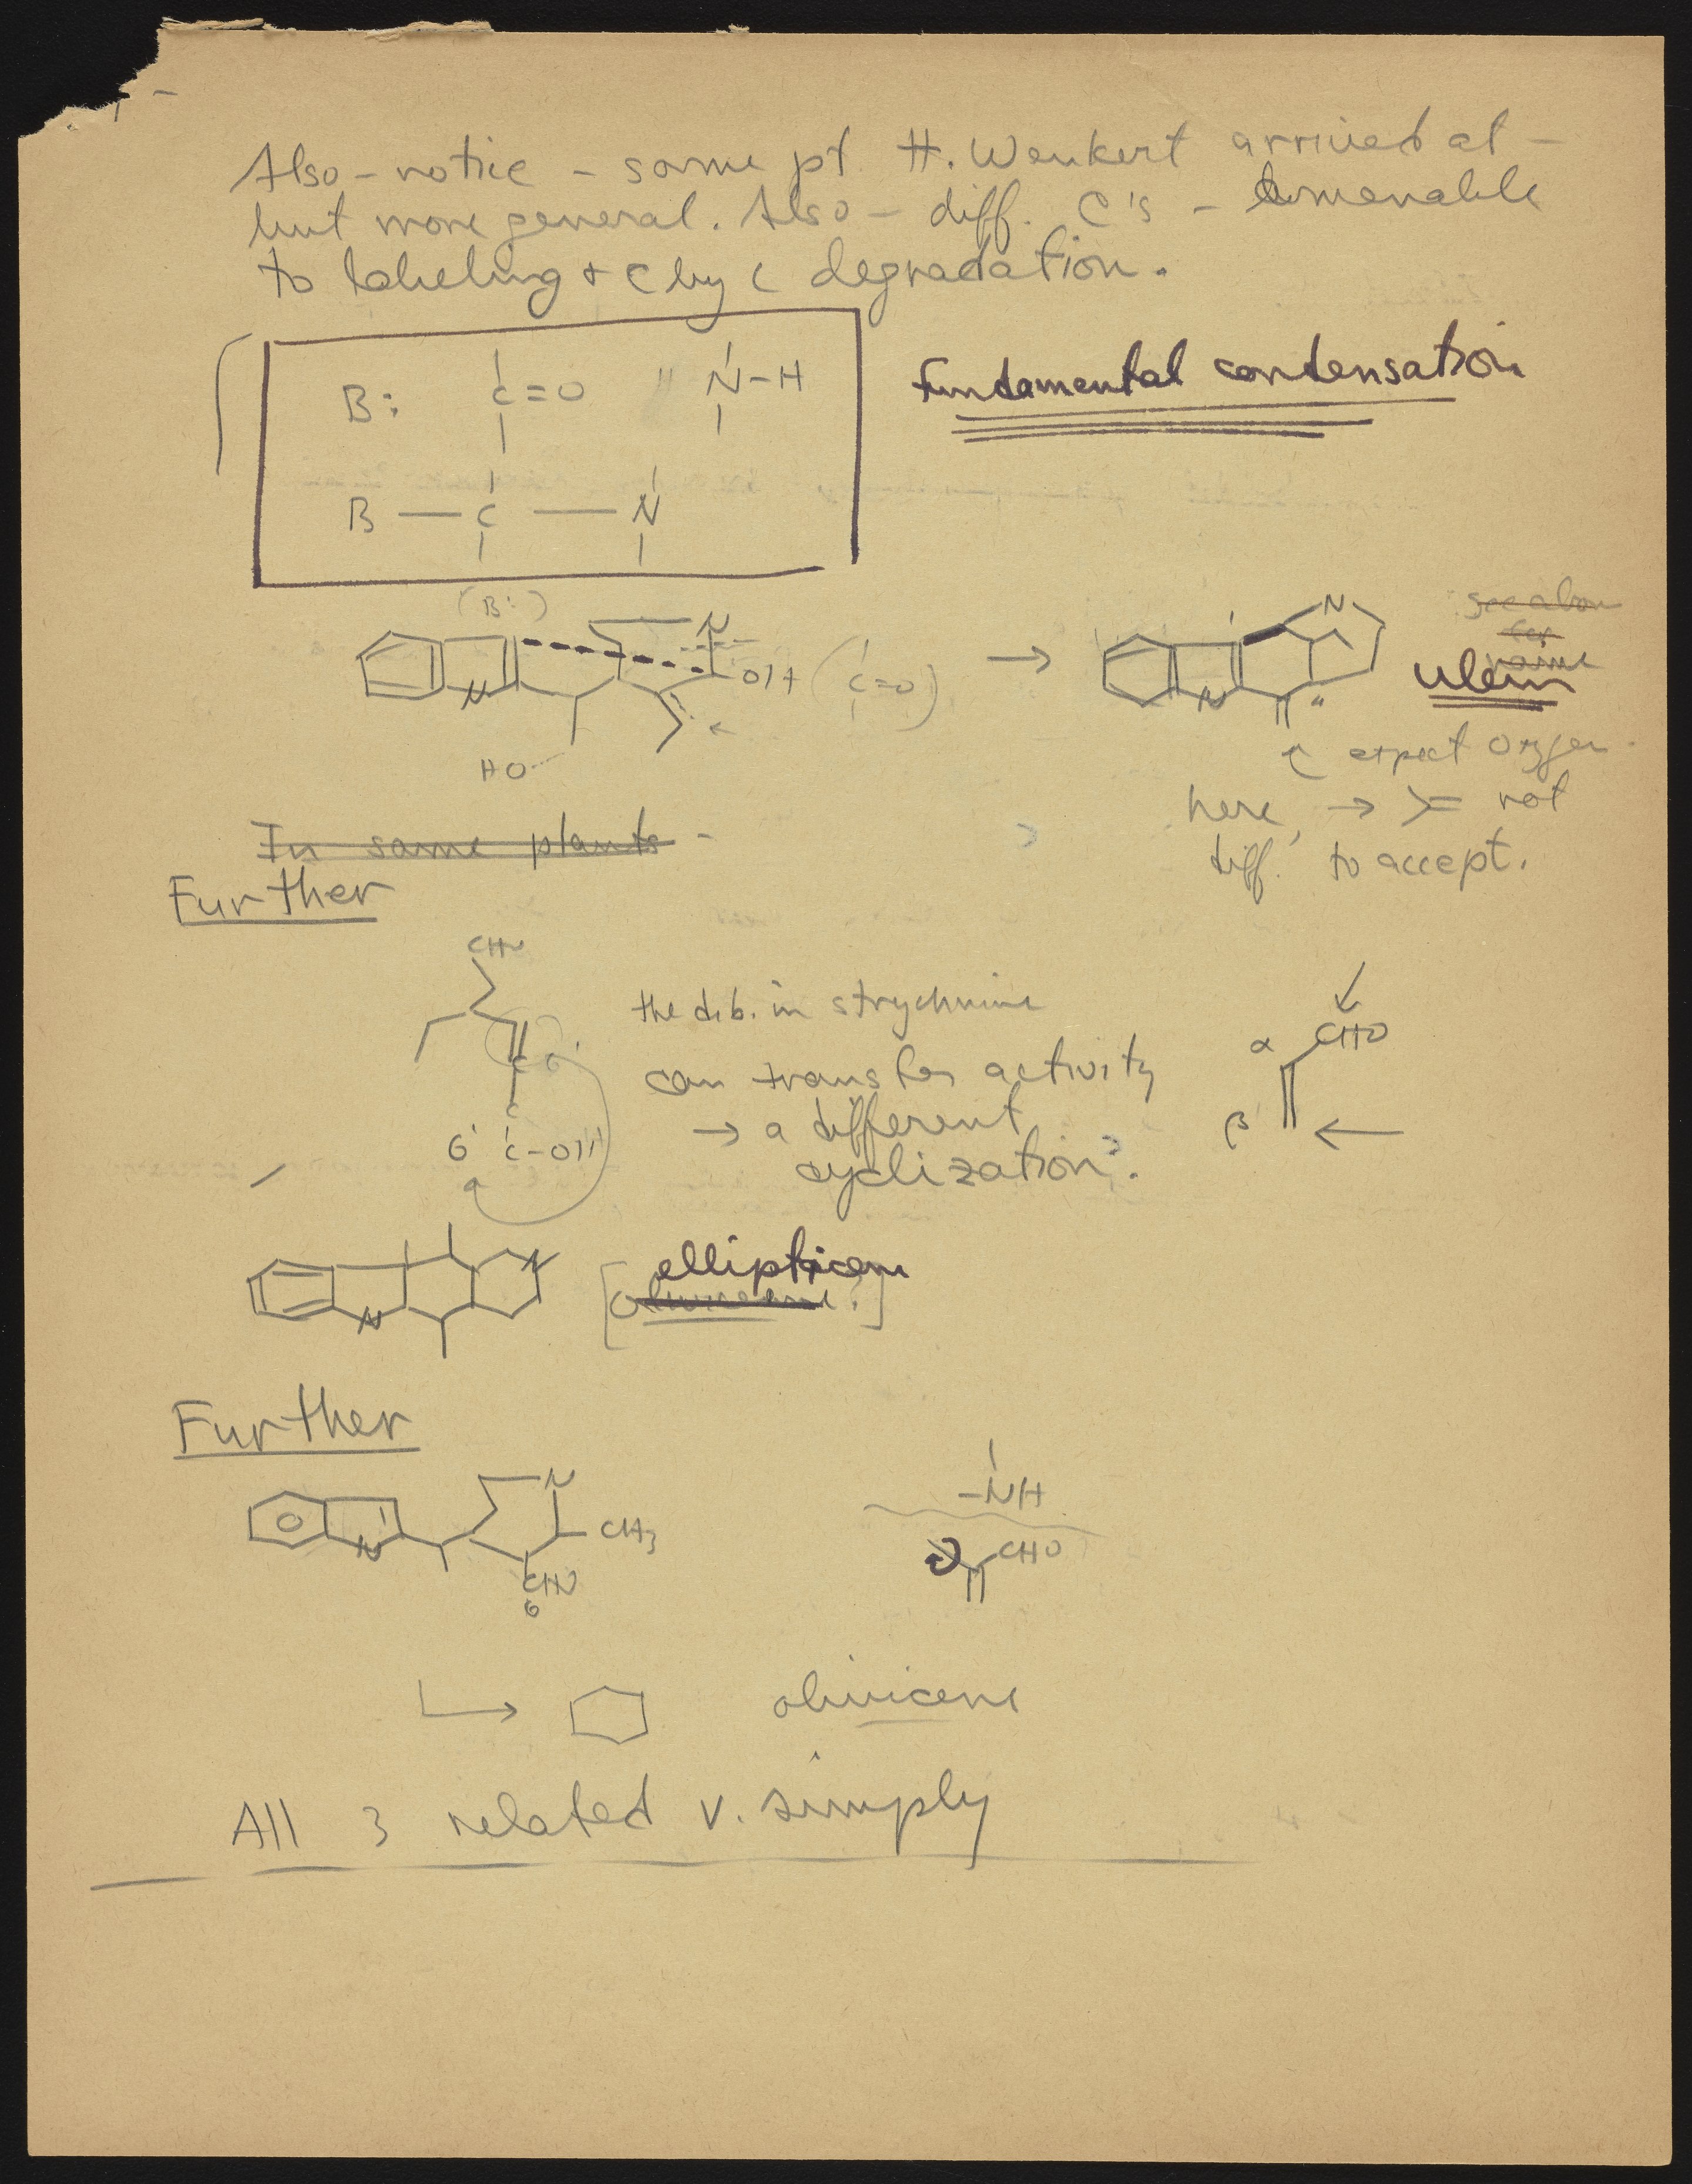 Also – notice – same pt H. Wenkert arrived at –
but more general. Also – diff. C's – amenable
to labeling + C by C degradation.
B: C=O N-H
Fundamental condensation
B — C — N
(B:)
N
N OH (C=O) →
HO
N
N
see above
for
ulein
expect oxygen
here, → >= not
diff. to accept.
In same plants –
Further
CHO
the d.b. in strychnine
can transfer activity
→ a different
cyclization?
C 6'
C
6' C-OH
α CHO
β
N
N
[ellipticene
olivicene?]
Further
N
N CH3
CHO
6
-NH
CHO
→ olivicene
All 3 related v. simply